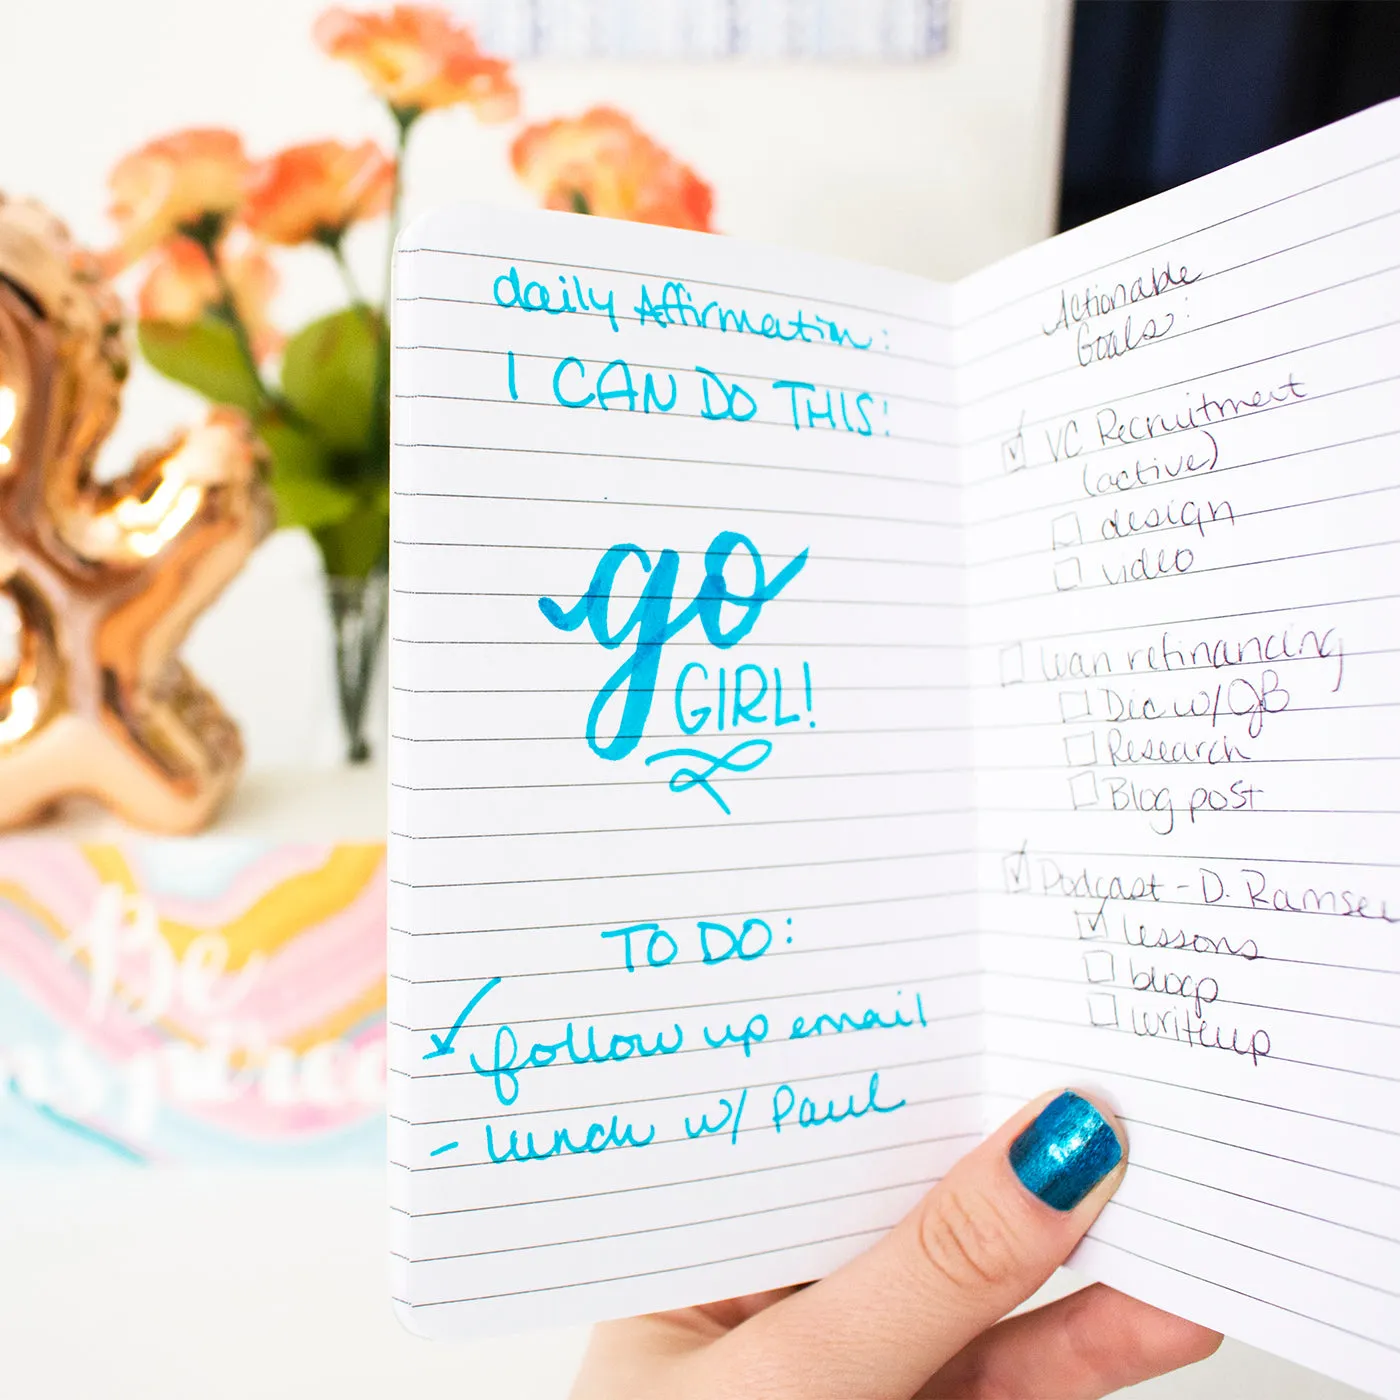 daily Affirmation:
I CAN DO THIS!
go
GIRL!
TO DO:
follow up email
- lunch w/ Paul
Actionable
Goals:
VC Recruitment
(active)
design
video
loan refinancing
Disc w/ JB
Research
Blog post
Podcast - D. Ramsey
lessons
blog
writeup
Be
inspired